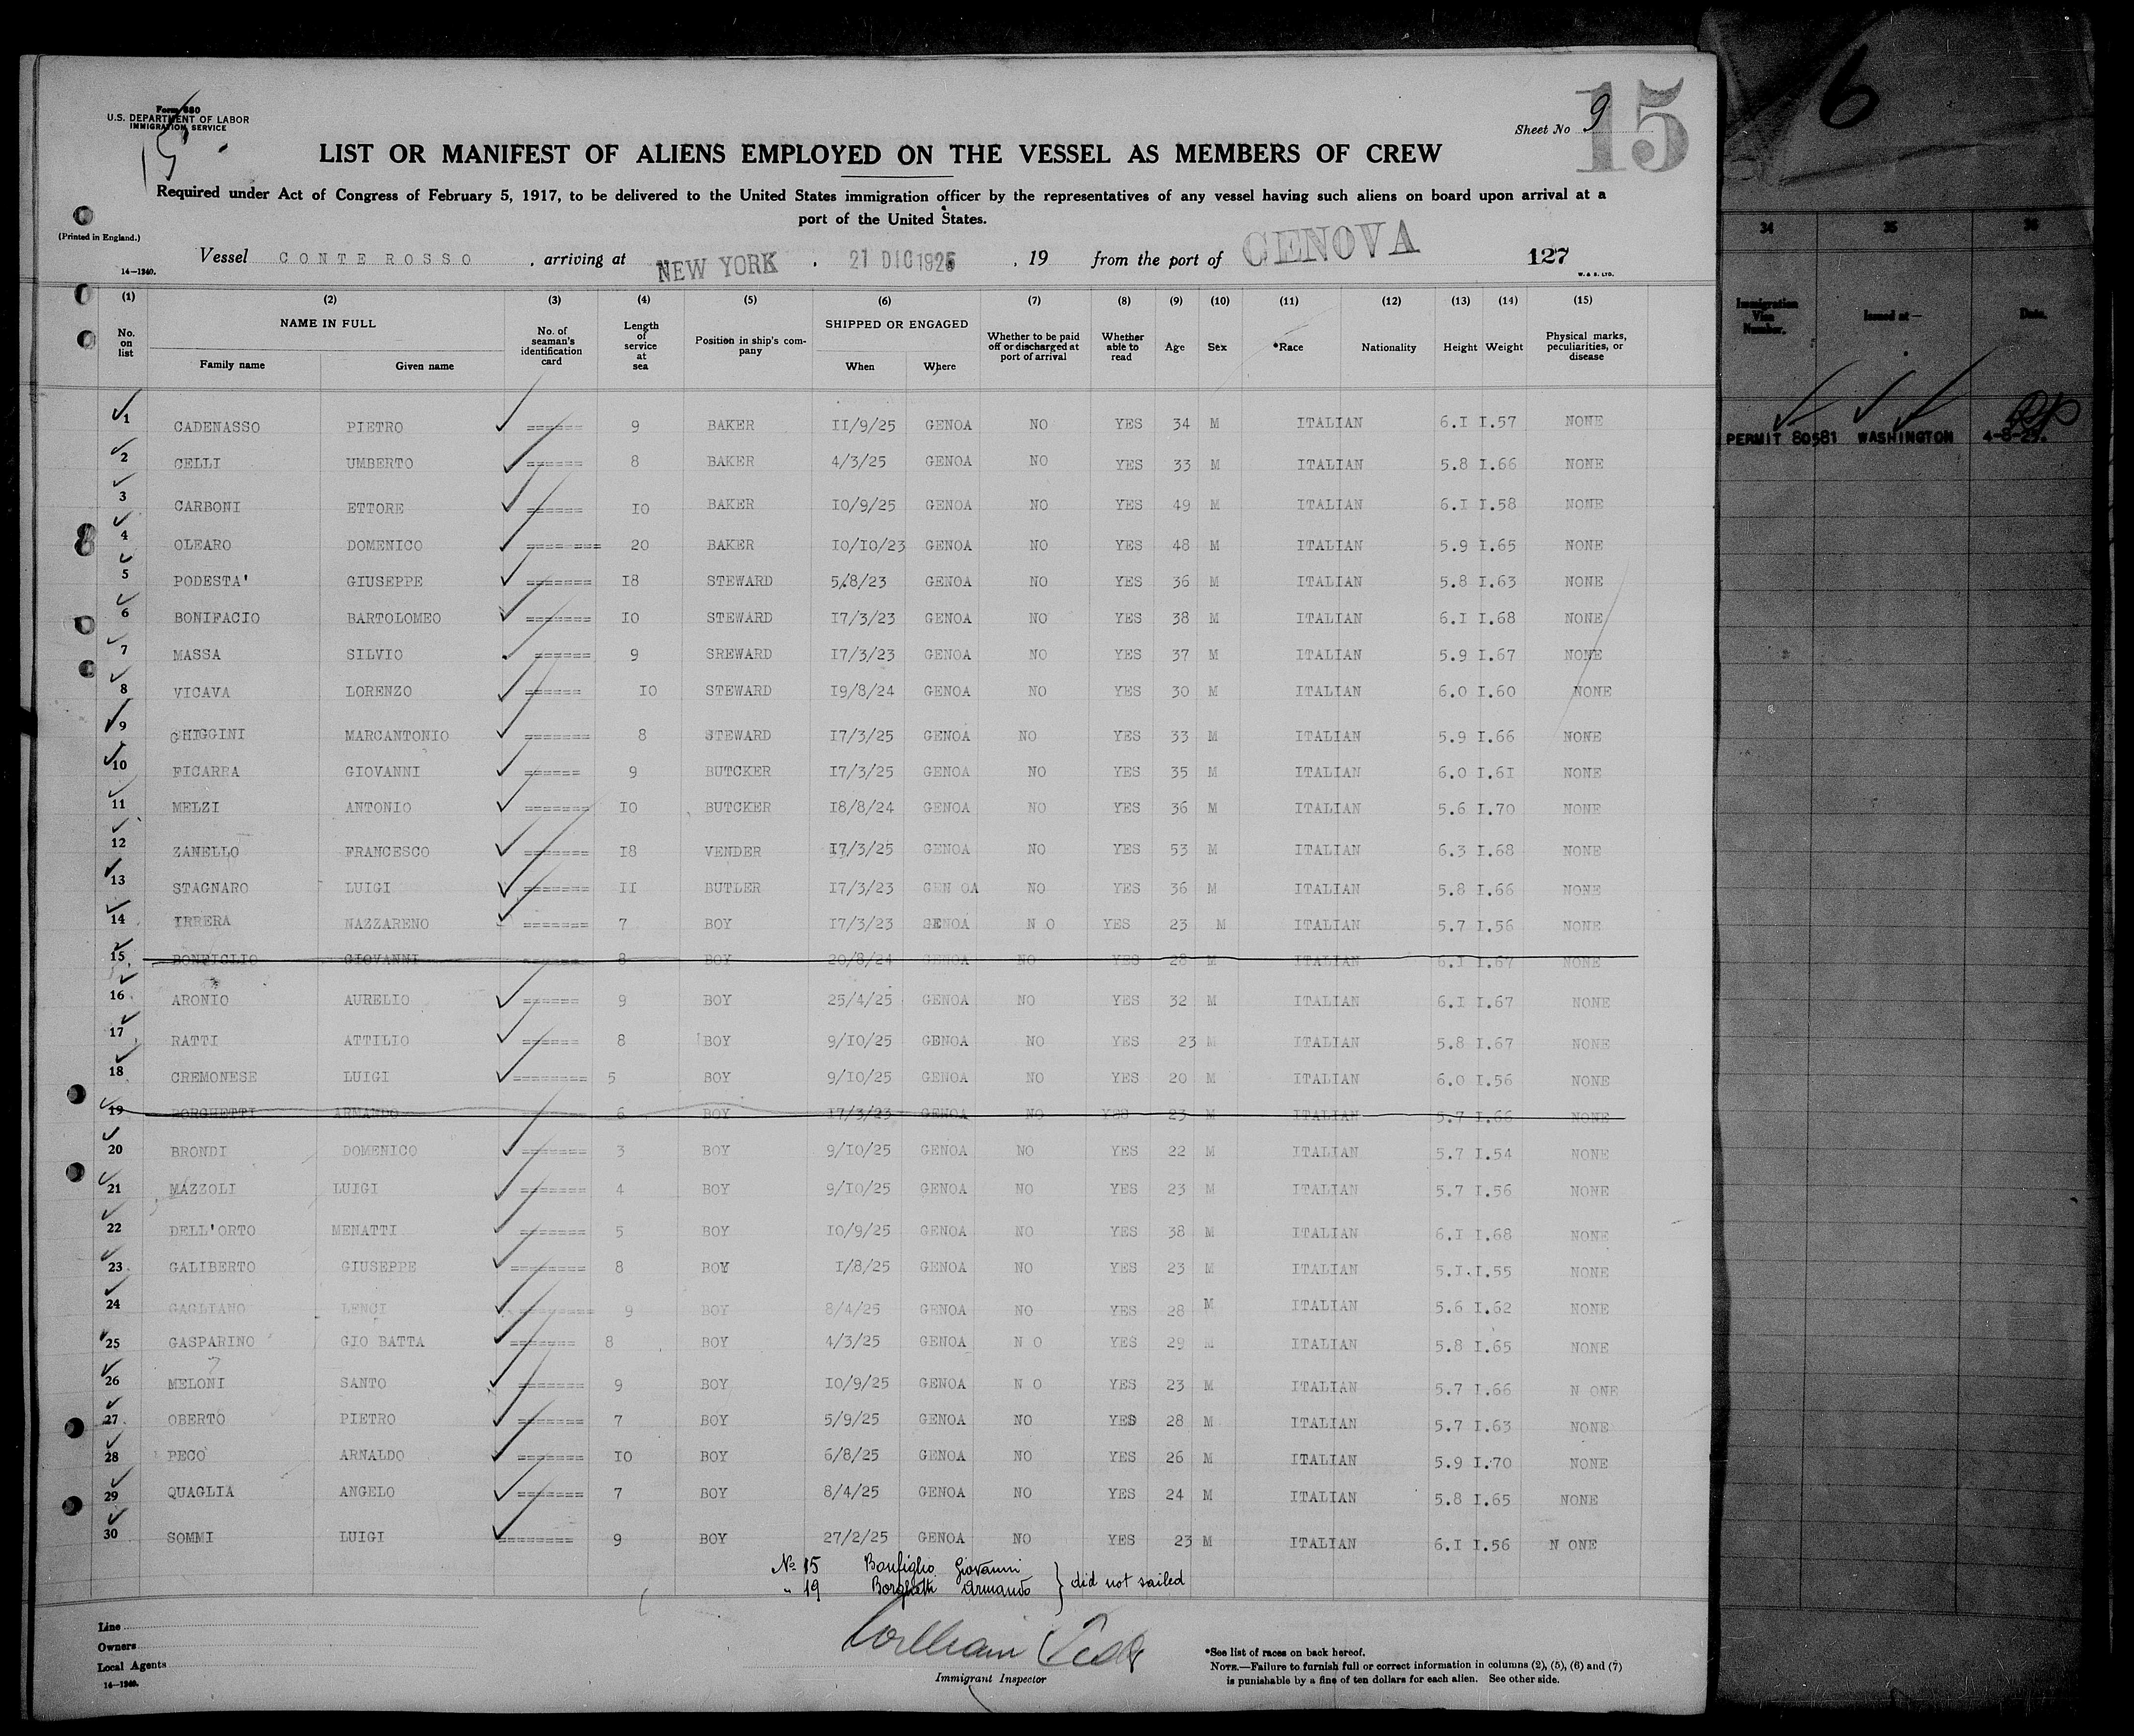 Form 680
U.S. DEPARTMENT OF LABOR
IMMIGRATION SERVICE
15
Sheet No 9
15
LIST OR MANIFEST OF ALIENS EMPLOYED ON THE VESSEL AS MEMBERS OF CREW
Required under Act of Congress of February 5, 1917, to be delivered to the United States immigration officer by the representatives of any vessel having such aliens on board upon arrival at a
port of the United States.
(Printed in England.)
Vessel CONTE ROSSO , arriving at NEW YORK , 21 DIC 1925 , 19 from the port of GENOVA 127
14—1240. W. & S. LTD.
(1) (2) (3) (4) (5) (6) (7) (8) (9) (10) (11) (12) (13) (14) (15)
No. on list NAME IN FULL Family name Given name No. of seaman's identification card Length of service at sea Position in ship's company SHIPPED OR ENGAGED When Where Whether to be paid off or discharged at port of arrival Whether able to read Age Sex *Race Nationality Height Weight Physical marks, peculiarities, or disease
1 CADENASSO PIETRO ====== 9 BAKER II/9/25 GENOA NO YES 34 M ITALIAN 6.I I.57 NONE
2 CELLI UMBERTO ====== 8 BAKER 4/3/25 GENOA NO YES 33 M ITALIAN 5.8 I.66 NONE
3 CARBONI ETTORE ====== IO BAKER IO/9/25 GENOA NO YES 49 M ITALIAN 6.I I.58 NONE
4 OLEARO DOMENICO ======== 20 BAKER IO/IO/23 GENOA NO YES 48 M ITALIAN 5.9 I.65 NONE
5 PODESTA' GIUSEPPE ======= I8 STEWARD 5/8/23 GENOA NO YES 36 M ITALIAN 5.8 I.63 NONE
6 BONIFACIO BARTOLOMEO ======= IO STEWARD I7/3/23 GENOA NO YES 38 M ITALIAN 6.I I.68 NONE
7 MASSA SILVIO ====== 9 SREWARD I7/3/23 GENOA NO YES 37 M ITALIAN 5.9 I.67 NONE
8 VICAVA LORENZO ====== IO STEWARD I9/8/24 GENOA NO YES 30 M ITALIAN 6.0 I.60 NONE
9 GHIGGINI MARCANTONIO ======= 8 STEWARD I7/3/25 GENOA NO YES 33 M ITALIAN 5.9 I.66 NONE
10 FICARRA GIOVANNI ====== 9 BUTCKER I7/3/25 GENOA NO YES 35 M ITALIAN 6.0 I.6I NONE
11 MELZI ANTONIO ======= IO BUTCKER I8/8/24 GENOA NO YES 36 M ITALIAN 5.6 I.70 NONE
12 ZANELLO FRANCESCO ======= I8 VENDER I7/3/25 GENOA NO YES 53 M ITALIAN 6.3 I.68 NONE
13 STAGNARO LUIGI ======= II BUTLER I7/3/23 GEN OA NO YES 36 M ITALIAN 5.8 I.66 NONE
14 IRRERA NAZZARENO ======= 7 BOY I7/3/23 GENOA N O YES 23 M ITALIAN 5.7 I.56 NONE
15 BONFIGLIO GIOVANNI 8 BOY 20/8/24 GENOA NO YES 28 M ITALIAN 6.I I.67 NONE
16 ARONIO AURELIO ====== 9 BOY 25/4/25 GENOA NO YES 32 M ITALIAN 6.I I.67 NONE
17 RATTI ATTILIO ====== 8 BOY 9/IO/25 GENOA NO YES 23 M ITALIAN 5.8 I.67 NONE
18 CREMONESE LUIGI ======== 5 BOY 9/IO/25 GENOA NO YES 20 M ITALIAN 6.0 I.56 NONE
19 BORGHETTI ARMANDO 6 BOY I7/3/23 GENOA NO YES 23 M ITALIAN 5.7 I.66 NONE
20 BRONDI DOMENICO ======= 3 BOY 9/IO/25 GENOA NO YES 22 M ITALIAN 5.7 I.54 NONE
21 MAZZOLI LUIGI ======= 4 BOY 9/IO/25 GENOA NO YES 23 M ITALIAN 5.7 I.56 NONE
22 DELL'ORTO MENATTI ======= 5 BOY IO/9/25 GENOA NO YES 38 M ITALIAN 6.I I.68 NONE
23 GALIBERTO GIUSEPPE ======== 8 BOY I/8/25 GENOA NO YES 23 M ITALIAN 5.I.I.55 NONE
24 GAGLIANO LENCI ======== 9 BOY 8/4/25 GENOA NO YES 28 M ITALIAN 5.6 I.62 NONE
25 GASPARINO GIO BATTA ======= 8 BOY 4/3/25 GENOA N O YES 29 M ITALIAN 5.8 I.65 NONE
26 MELONI SANTO ======= 9 BOY IO/9/25 GENOA N O YES 23 M ITALIAN 5.7 I.66 N ONE
27 OBERTO PIETRO ======= 7 BOY 5/9/25 GENOA NO YES 28 M ITALIAN 5.7 I.63 NONE
28 PECO ARNALDO ======= IO BOY 6/8/25 GENOA NO YES 26 M ITALIAN 5.9 I.70 NONE
29 QUAGLIA ANGELO ======= 7 BOY 8/4/25 GENOA NO YES 24 M ITALIAN 5.8 I.65 NONE
30 SOMMI LUIGI ======== 9 BOY 27/2/25 GENOA NO YES 23 M ITALIAN 6.I I.56 N ONE
No 15 Bonfiglio Giovanni
" 19 Borghetti Armando } did not sailed
William
Immigrant Inspector
Line
Owners
Local Agents
14—1240.
*See list of races on back hereof.
NOTE.—Failure to furnish full or correct information in columns (2), (5), (6) and (7)
is punishable by a fine of ten dollars for each alien. See other side.
6
34 35 36
Immigration Visa Number. Issued at— Date.
PERMIT 80581 WASHINGTON 4-8-25.